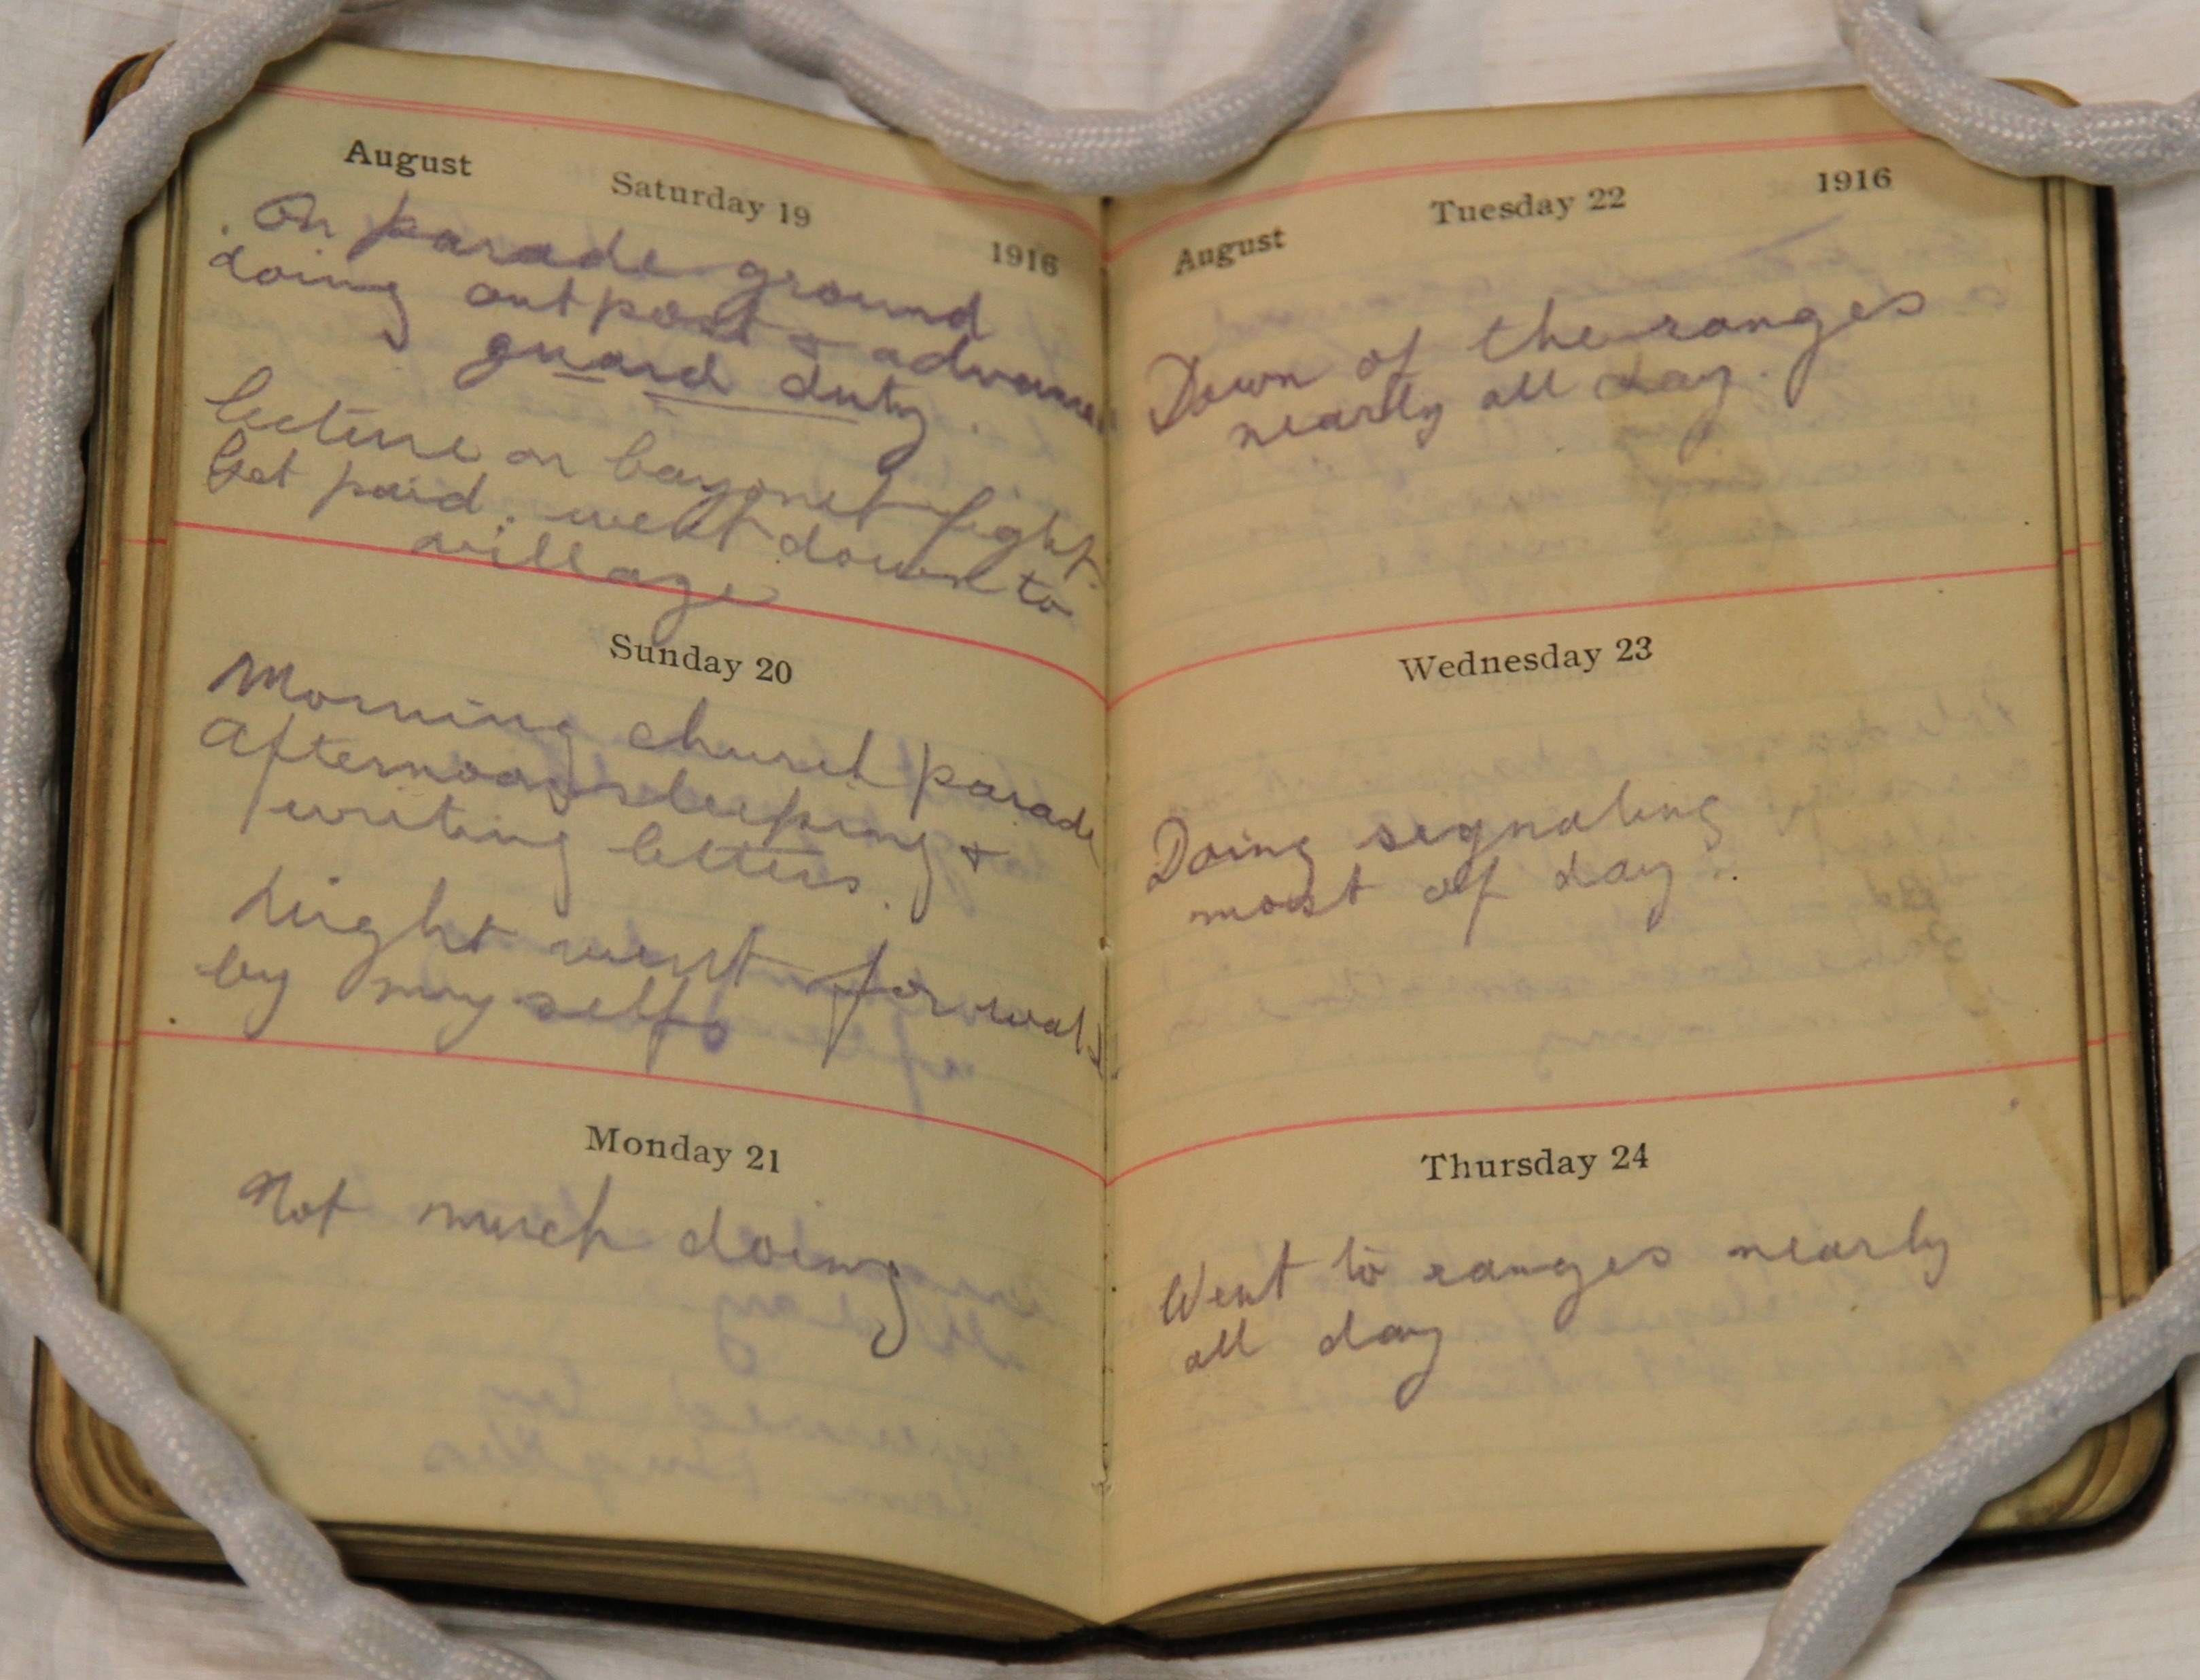 August
Saturday 19
1916
On parade ground
doing outpost & advance
guard duty
lecture on bayonet fight.
Get paid. went down to
village
Sunday 20
Morning church parade
Afternoon sleeping &
writing letters.
Night went for walk
by myself
Monday 21
Not much doing
1916
Tuesday 22
August
Down of the ranges
nearly all day.
Wednesday 23
Doing signaling
most of day.
Thursday 24
Went to ranges nearly
all day